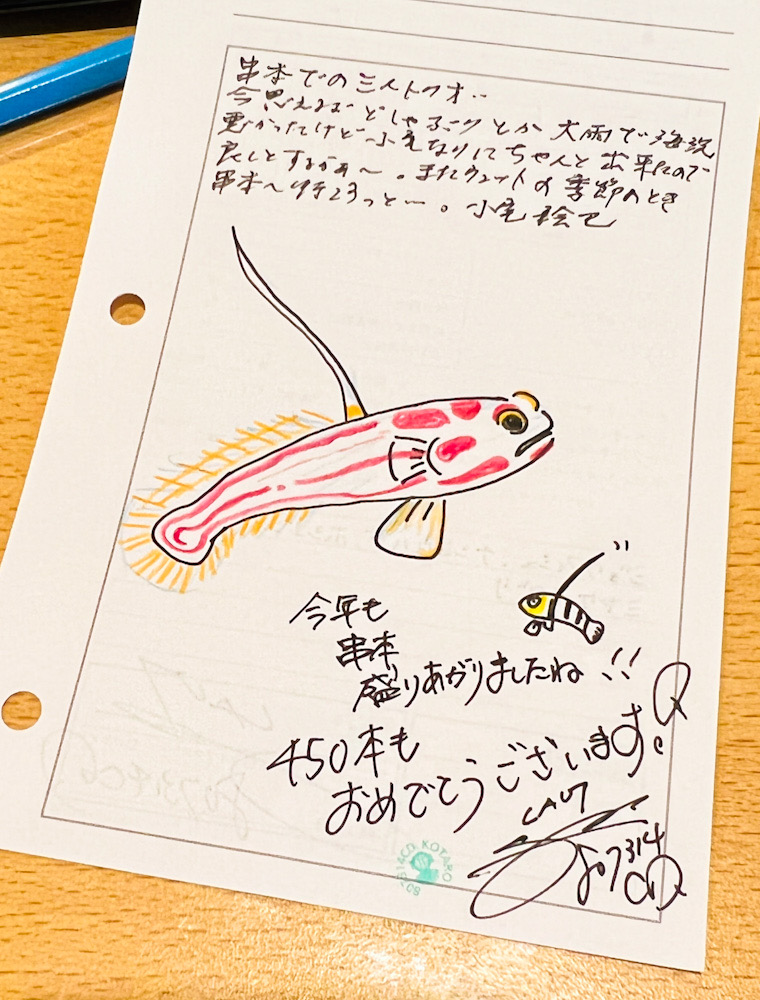 串本での三人トクオ‥
今思えばどしゃぶりとか大雨で海況
悪かったけど小尾なりにちゃんと出来たので
良しとするかぁ〜。またウェットの季節のとき
串本へ行こうっと…。小尾絵で
今年も
串本
盛りあがりましたね!!
450本も
おめでとうございます。
KOTARO
807314